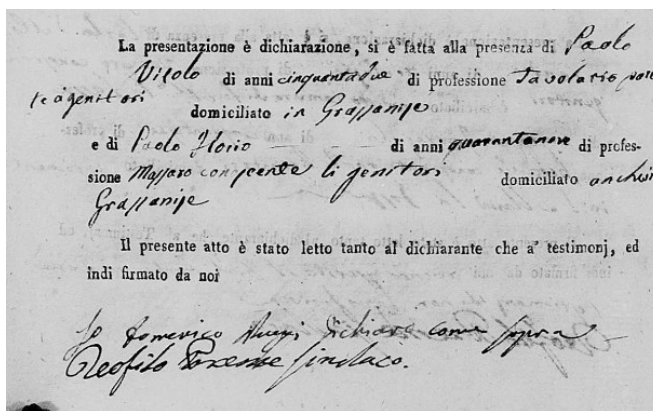 La presentazione è dichiarazione, si è fatta alla presenza di Paolo
di anni cinquantadue di professione
genitori domiciliato in Grassanise
e di Paolo Ilorio di anni quarantanove di profes-
sione Massaro li genitori domiciliato
Grassanise
Il presente atto è stato letto tanto al dichiarante che a' testimonj, ed
indi firmato da noi
Io Domenico dichiaro come sopra
Teofilo Parente Sindaco.